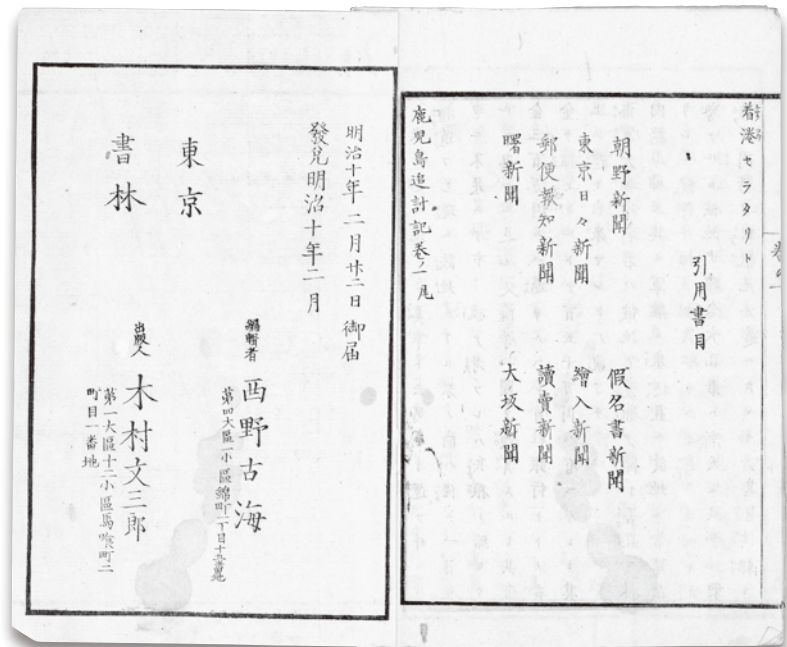 着港セラタリト
引用書目
朝野新聞
假名書新聞
東京日々新聞
繪入新聞
郵便報知新聞
讀賣新聞
曙新聞
大坂新聞
鹿児島追討記巻ノ一尾
明治十年二月廿二日御届
發兌明治十年二月
編輯者 西野古海
第四大區一小區錦町二丁目十五番地
東京
書林
出版人 木村文三郎
第一大區十二小區馬喰町二
町目一番地